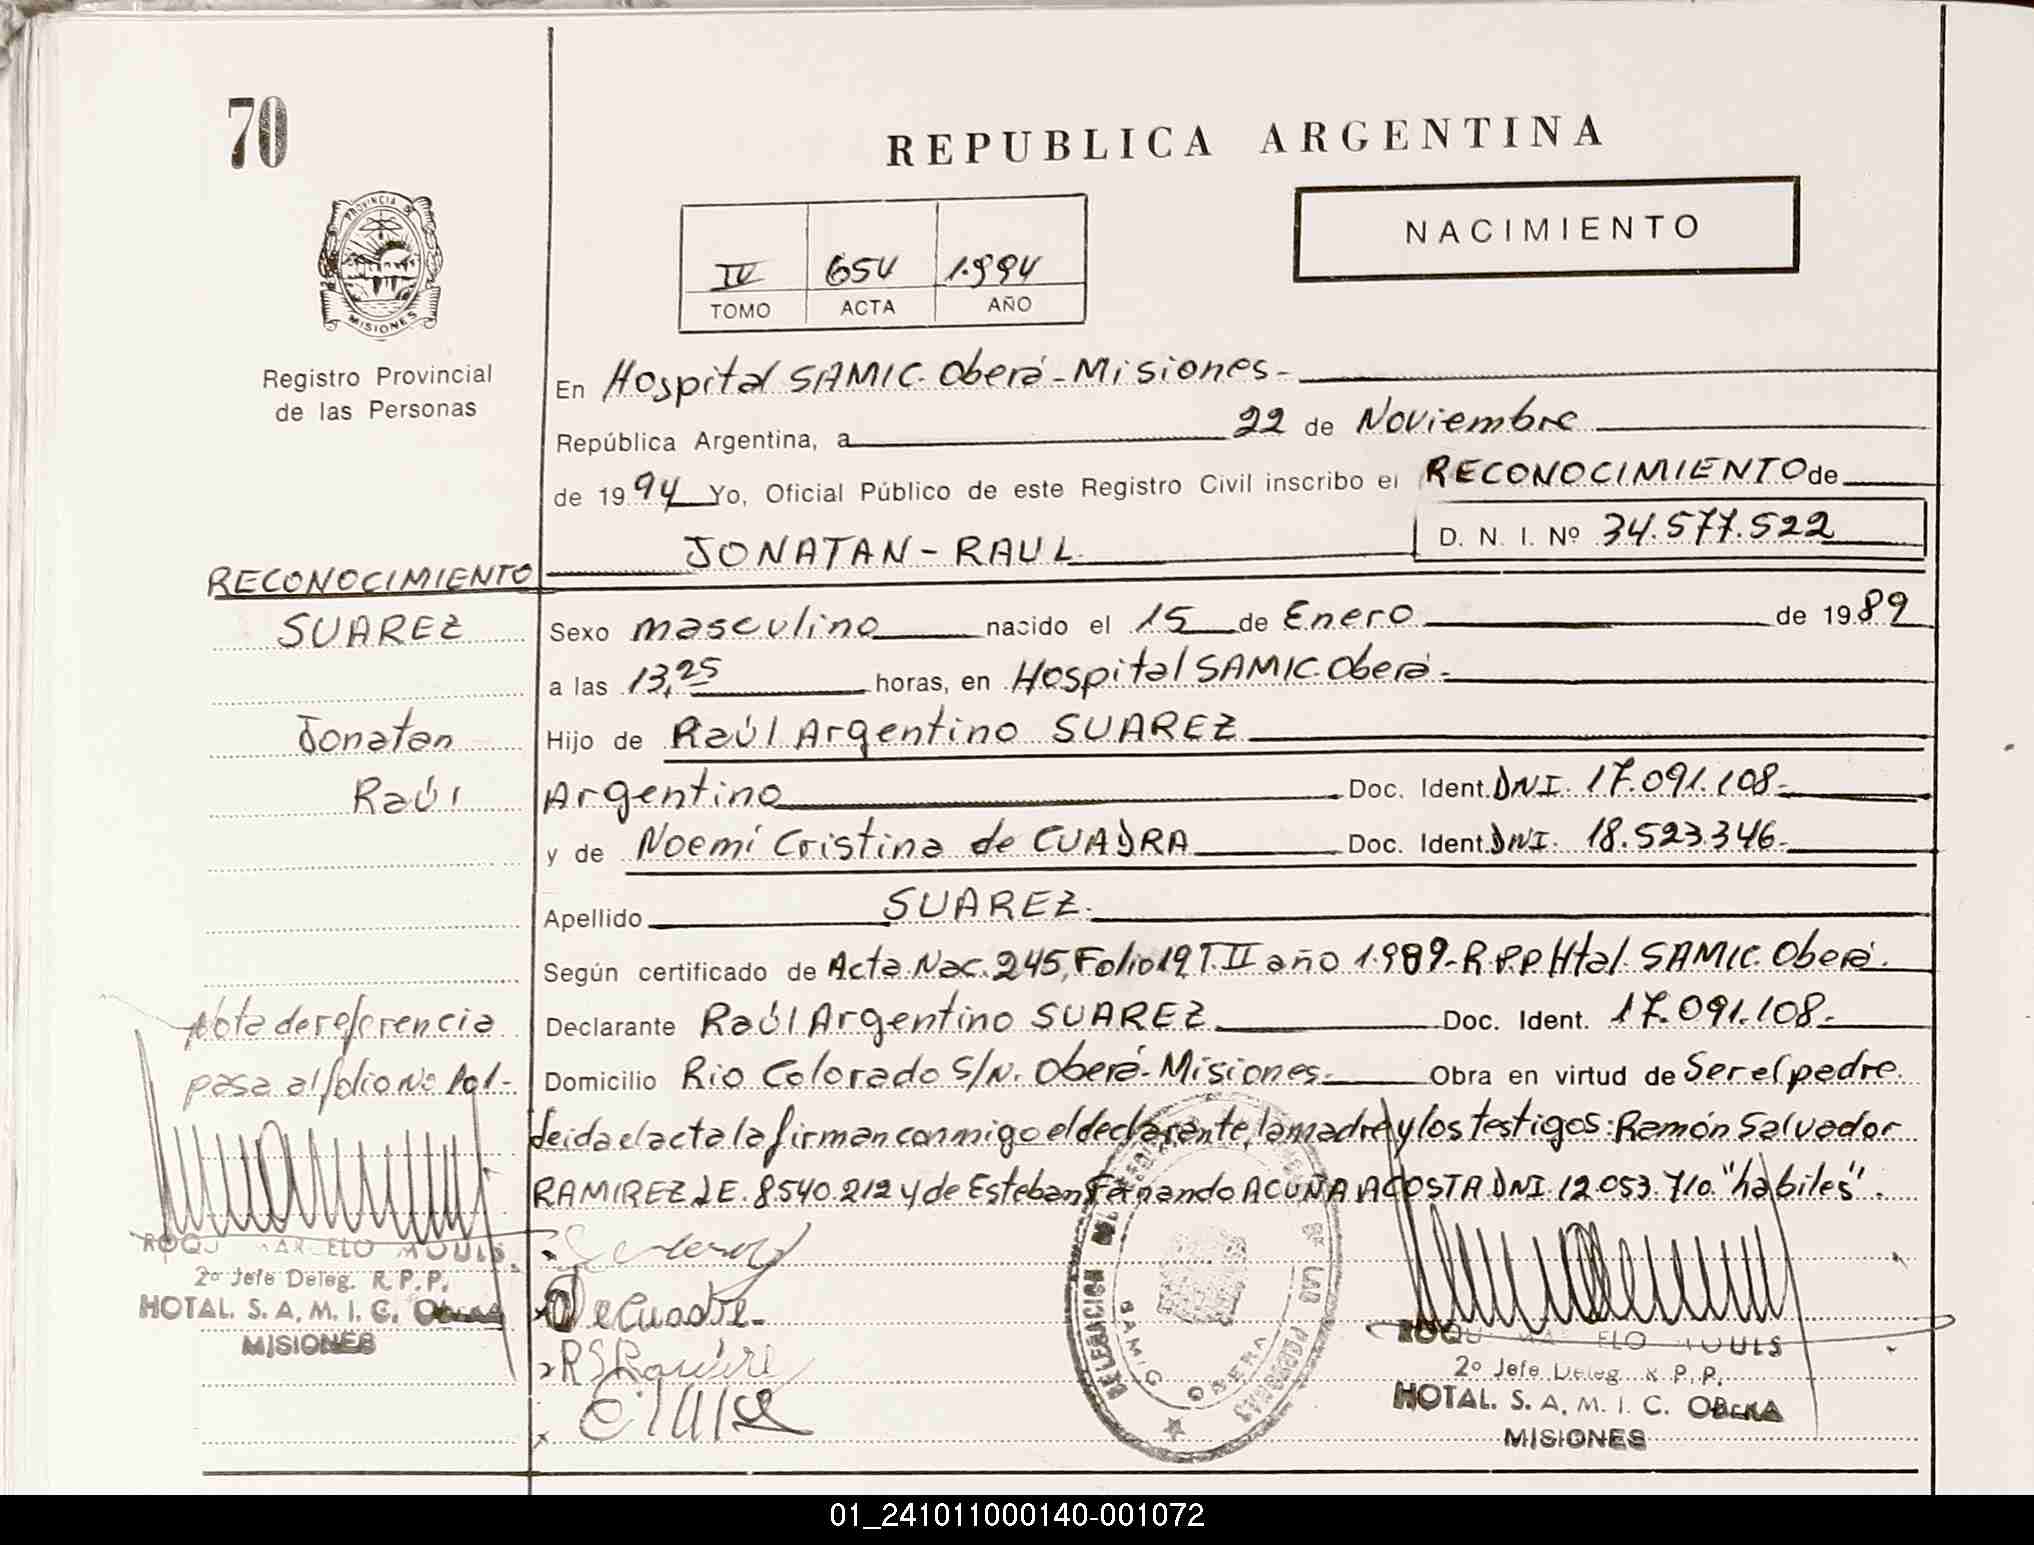 70
REPUBLICA ARGENTINA
NACIMIENTO
PROVINCIA DE
MISIONES
IV 654 1.994
TOMO ACTA AÑO
Registro Provincial
de las Personas
En Hospital SAMIC. Oberá - Misiones -
República Argentina, a 22 de Noviembre
de 1994 Yo, Oficial Público de este Registro Civil inscribo el RECONOCIMIENTO de
JONATAN - RAUL D. N. I. Nº 34.577.522
RECONOCIMIENTO
SUAREZ
Jonatan
Raúl
Sexo masculino nacido el 15 de Enero de 1989
a las 13,25 horas, en Hospital SAMIC. Oberá -
Hijo de Raúl Argentino SUAREZ
Argentino Doc. Ident. DNI. 17.091.108-
y de Noemí Cristina de CUADRA Doc. Ident. DNI. 18.523.346-
Apellido SUAREZ.
Según certificado de Acta Nac. 245, Folio 19, T. II año 1.989- R.P.P. Htal. SAMIC. Oberá.
Declarante Raúl Argentino SUAREZ Doc. Ident. 17.091.108-
Domicilio Rio Colorado S/N. Oberá - Misiones - Obra en virtud de Ser el padre
Leida el acta la firman conmigo el declarante, la madre y los testigos: Ramón Salvador
RAMIREZ LE. 8.540.212 y de Esteban Fernando ACUÑA ACOSTA DNI. 12.053.710. "hábiles".
Nota de referencia
pasa al folio Nº
De Cuadra
2º Jefe Deleg. R. P. P.
HOTAL. S. A. M. I. C. OBERA
MISIONES
DELEGACION DEL REGISTRO DE LAS PERSONAS
SAMIC OBERA
2º Jefe Deleg. R. P. P.
HOTAL. S. A. M. I. C. OBERA
MISIONES
01_241011000140-001072